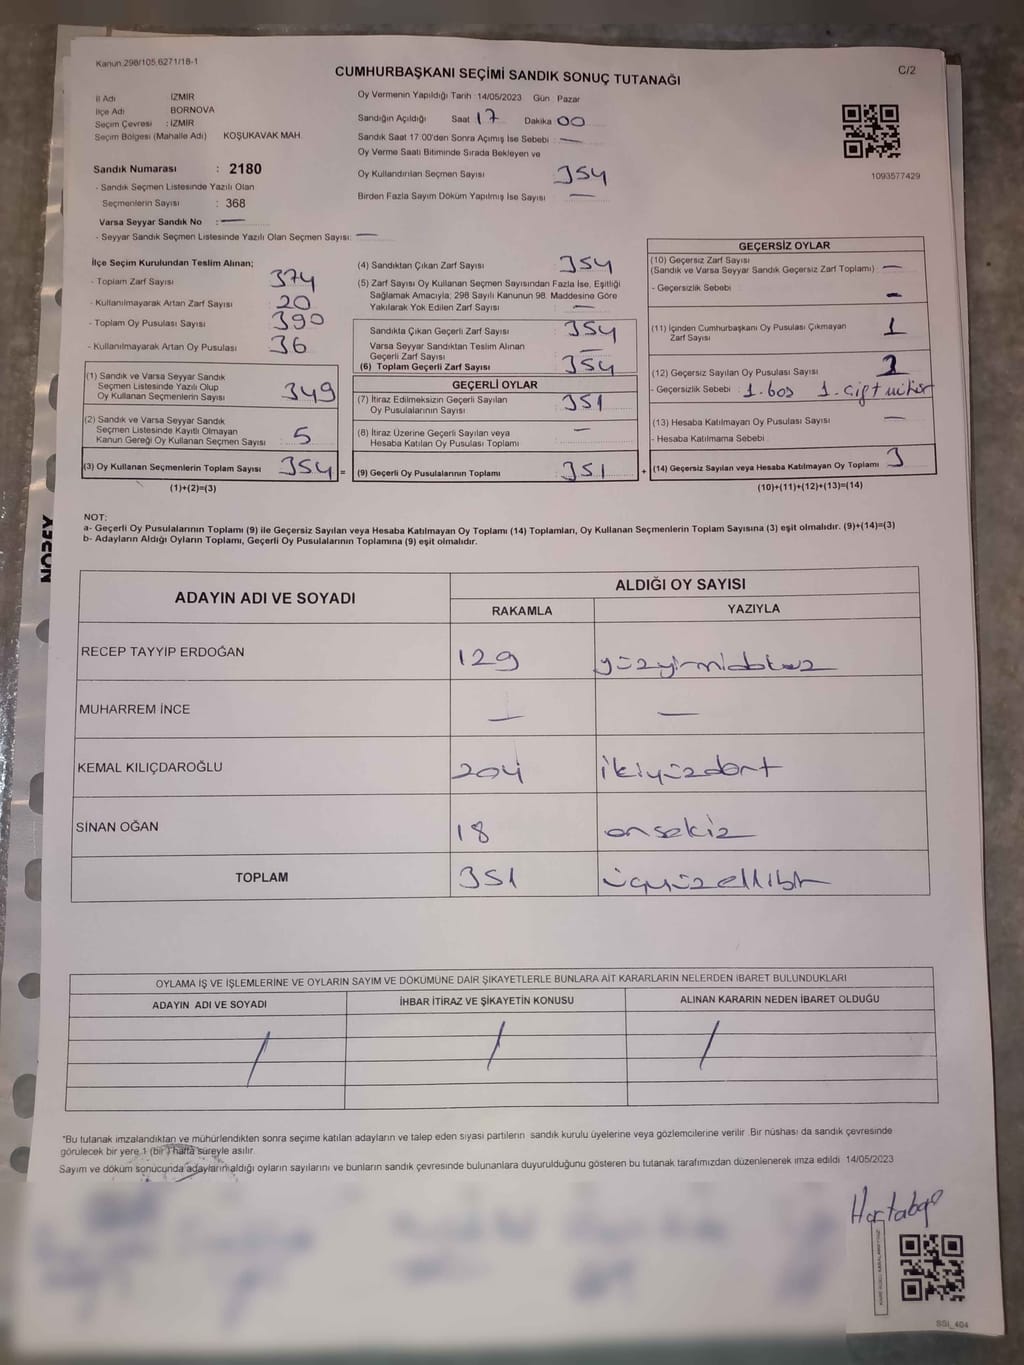 Kanun.298/105,6271/18-1
CUMHURBAŞKANI SEÇİMİ SANDIK SONUÇ TUTANAĞI
C/2
İl Adı İZMİR
İlçe Adı BORNOVA
Seçim Çevresi : İZMİR
Seçim Bölgesi (Mahalle Adı) KOŞUKAVAK MAH.
Sandık Numarası : 2180
- Sandık Seçmen Listesinde Yazılı Olan
Seçmenlerin Sayısı : 368
Varsa Seyyar Sandık No : —
- Seyyar Sandık Seçmen Listesinde Yazılı Olan Seçmen Sayısı: —
Oy Vermenin Yapıldığı Tarih : 14/05/2023 Gün Pazar
Sandığın Açıldığı Saat 17 Dakika 00
Sandık Saat 17:00'den Sonra Açımış İse Sebebi : —
Oy Verme Saati Bitiminde Sırada Bekleyen ve
Oy Kullandırılan Seçmen Sayısı 354
Birden Fazla Sayım Döküm Yapılmış İse Sayısı —
1093577429
İlçe Seçim Kurulundan Teslim Alınan;
- Toplam Zarf Sayısı : 374
- Kullanılmayarak Artan Zarf Sayısı : 20
- Toplam Oy Pusulası Sayısı : 390
- Kullanılmayarak Artan Oy Pusulası : 36
(1) Sandık ve Varsa Seyyar Sandık
Seçmen Listesinde Yazılı Olup
Oy Kullanan Seçmenlerin Sayısı : 349
(2) Sandık ve Varsa Seyyar Sandık
Seçmen Listesinde Kayıtlı Olmayan
Kanun Gereği Oy Kullanan Seçmen Sayısı : 5
(3) Oy Kullanan Seçmenlerin Toplam Sayısı : 354 =
(1)+(2)=(3)
(4) Sandıktan Çıkan Zarf Sayısı : 354
(5) Zarf Sayısı Oy Kullanan Seçmen Sayısından Fazla İse, Eşitliği
Sağlamak Amacıyla; 298 Sayılı Kanunun 98. Maddesine Göre
Yakılarak Yok Edilen Zarf Sayısı : —
Sandıkta Çıkan Geçerli Zarf Sayısı : 354
Varsa Seyyar Sandıktan Teslim Alınan
Geçerli Zarf Sayısı : —
(6) Toplam Geçerli Zarf Sayısı : 354
GEÇERLİ OYLAR
(7) İtiraz Edilmeksizin Geçerli Sayılan
Oy Pusulalarının Sayısı : 351
(8) İtiraz Üzerine Geçerli Sayılan veya
Hesaba Katılan Oy Pusulası Toplamı : —
(9) Geçerli Oy Pusulalarının Toplamı : 351 +
GEÇERSİZ OYLAR
(10) Geçersiz Zarf Sayısı
(Sandık ve Varsa Seyyar Sandık Geçersiz Zarf Toplamı) : —
- Geçersizlik Sebebi : —
(11) İçinden Cumhurbaşkanı Oy Pusulası Çıkmayan
Zarf Sayısı : 1
(12) Geçersiz Sayılan Oy Pusulası Sayısı :
- Geçersizlik Sebebi : 1. boş 1. çift mühür
(13) Hesaba Katılmayan Oy Pusulası Sayısı : —
- Hesaba Katılmama Sebebi
(14) Geçersiz Sayılan veya Hesaba Katılmayan Oy Toplamı : 3
(10)+(11)+(12)+(13)=(14)
NOT:
a- Geçerli Oy Pusulalarının Toplamı (9) ile Geçersiz Sayılan veya Hesaba Katılmayan Oy Toplamı (14) Toplamları, Oy Kullanan Seçmenlerin Toplam Sayısına (3) eşit olmalıdır. (9)+(14)=(3)
b- Adayların Aldığı Oyların Toplamı, Geçerli Oy Pusulalarının Toplamına (9) eşit olmalıdır.
ADAYIN ADI VE SOYADI ALDIĞI OY SAYISI
RAKAMLA YAZIYLA
RECEP TAYYİP ERDOĞAN 129 yüzyirmidokuz
MUHARREM İNCE — —
KEMAL KILIÇDAROĞLU 204 ikiyüzdört
SİNAN OĞAN 18 onsekiz
TOPLAM 351 üçyüzellibir
OYLAMA İŞ VE İŞLEMLERİNE VE OYLARIN SAYIM VE DÖKÜMÜNE DAİR ŞİKAYETLERLE BUNLARA AİT KARARLARIN NELERDEN İBARET BULUNDUKLARI
ADAYIN ADI VE SOYADI İHBAR İTİRAZ VE ŞİKAYETİN KONUSU ALINAN KARARIN NEDEN İBARET OLDUĞU
/ / /
*Bu tutanak imzalandıktan ve mühürlendikten sonra seçime katılan adayların ve talep eden siyasi partilerin sandık kurulu üyelerine veya gözlemcilerine verilir. Bir nüshası da sandık çevresinde
görülecek bir yere 1 (bir) hafta süreyle asılır.
Sayım ve döküm sonucunda adayların aldığı oyların sayılarını ve bunların sandık çevresinde bulunanlara duyurulduğunu gösteren bu tutanak tarafımızdan düzenlenerek imza edildi 14/05/2023
SSI_404